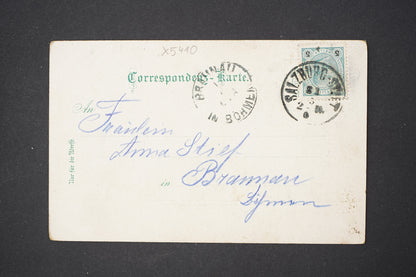 X5410
Correspondenz-Karte.
SALZBURG-STADT
BRAUNAU
IN BÖHMEN
An
Fräulein
Anna Stief
in
Braunau
Böhmen
Nur für die Adresse